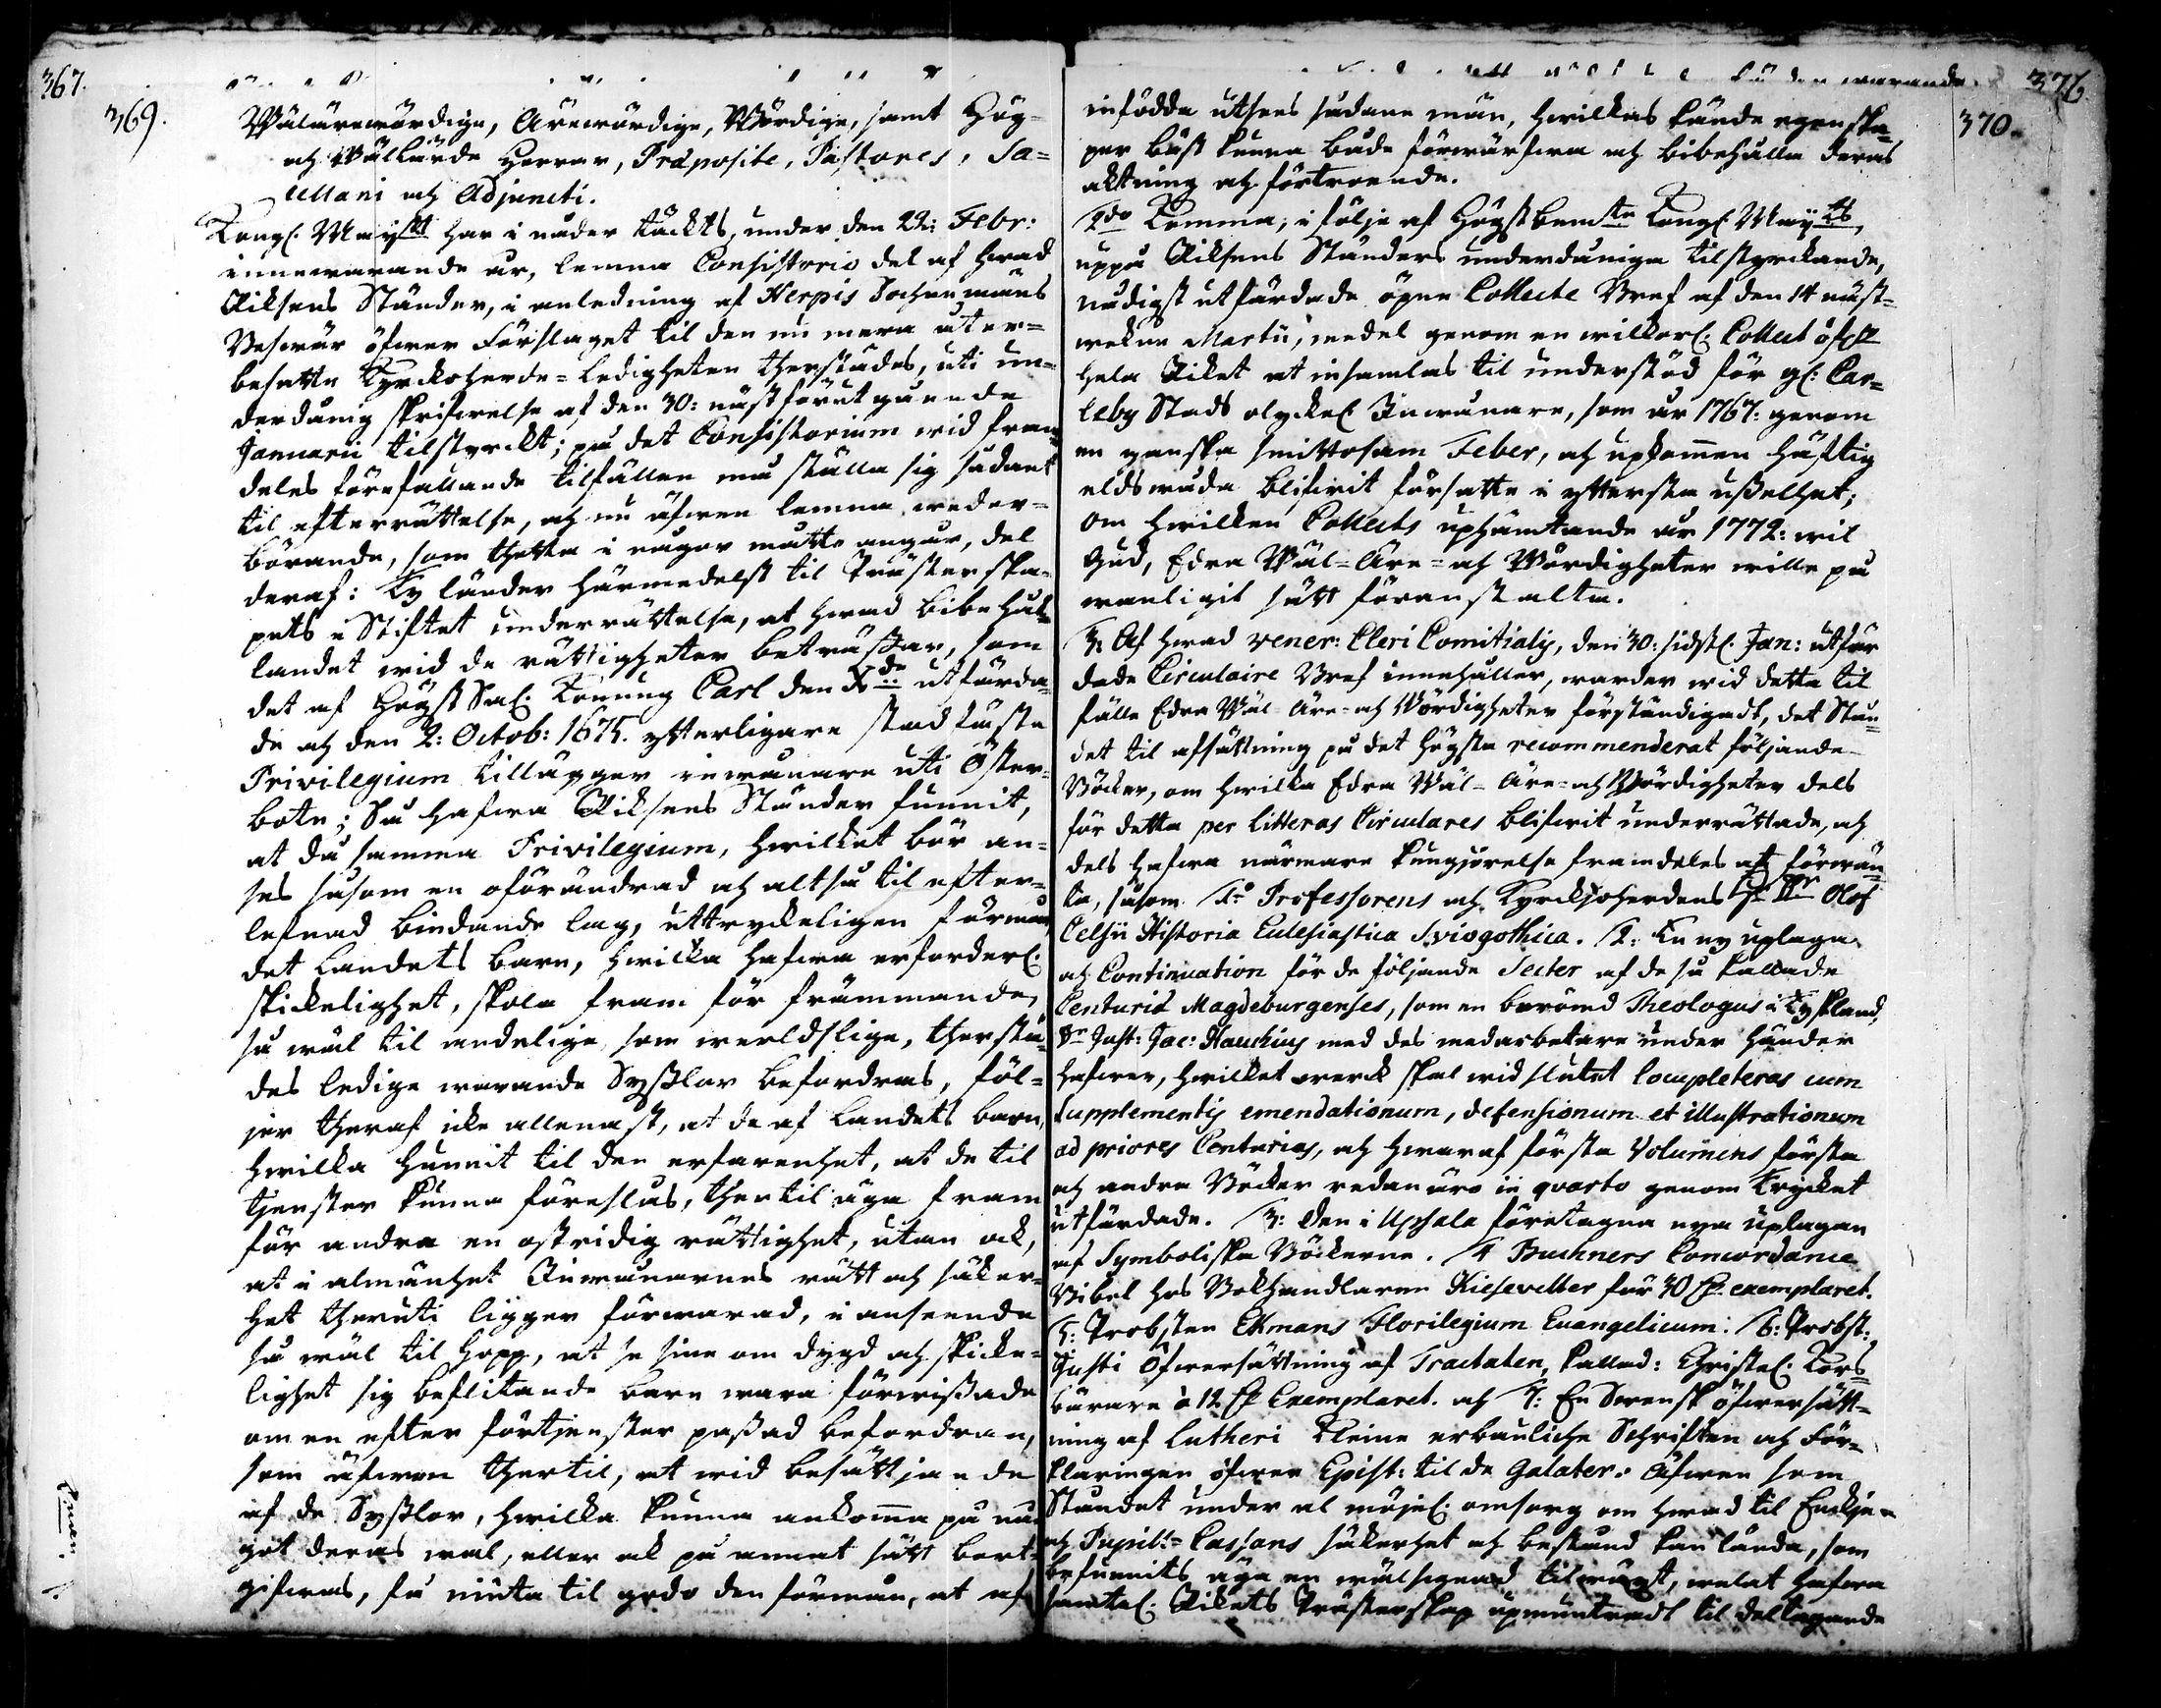 367.
369.
Wälärewördige, Ärewördige, Wördige, samt Hög-
och Wällärde Herrar, Præposite, Pastores, Sa=
cellani och Adjuncti.
Kongl. Maij:tt har i nåder täckts, under den 22: Febr:
innewarande år, lemna Consistorio del af hwad
Riksens Ständer, i anledning af Nerpis Sochnemäns
Beswär öfwer Förslaget til den nu mera åter=
besatte Kyrckoherde-Ledigheten therstädes, uti un=
derdånig skrifwelse af den 30: nästförutgående
Januarii tilstyrckt; på det Consistorium wid fram=
deles förefallande tilfällen må ställa sig sådant
til efterrättelse, och nu äfwen lemna weder=
börande, som thetta i någor måtto angår, del
deraf: Ty länder härmedelst til Prästerska=
pets i Stiftet underrättelse, at hwad bibehål=
landet wid de rättigheter beträffar, som
det af Högst Sal. Konung Carl den X:de utfärda=
de och den 2: Octob: 1675. ytterligare stadfäste
Privilegium tillägger inwånare uti Öster=
botn; Så hafwa Riksens Ständer funnit,
at då samma Privilegium, hwilket bör an=
ses såsom en oförändrad och altså til efter=
lefnad bindande lag, uttryckeligen förmår,
det Landets barn, hwilka hafwa erforderl.
skickelighet, skola fram för främmande,
så wäl til andelige, som werldslige, therstä=
des ledige warande Sysslor befordras, föl=
jer theraf icke allenast, at de af Landets barn,
hwilka hunnit til den erfarenhet, at de til
tjenster kunna föreslås, thertil äga fram
för andra en ostridig rättighet, utan ock,
at i almänhet Inwånarnes rätt och säker=
het theruti ligger förwarad, i anseende
så wäl til hopp, at se sine om dygd och skicke=
lighet sig beflitande barn wara förwissade
om en efter förtjenster passad befordran,
som äfwen thertil, at wid besättjande
af de Sysslor, hwilka kunna ankomma på nå=
got deras wal, eller ock på annat sätt bort=
gifwas, få niuta til godo den förmån, at af
376.
370.
warande
infödda utsees sådane män, hwilkas kände egenska=
per bäst kunna både förwärfwa och bibehålla deras
aktning och förtroende.
2:do Komma, i följe af Högstbem:te Kongl. Maij:ts,
uppå Riksens Ständers underdåniga tilstyrckande,
nådigst utfärdade öpne Collecte Bref af den 14 näst=
wekne Martii, medel genom en wilkorl. Collect öfwer
hela Riket at insamlas til understöd för gl: Car=
leby Stads olyckel. Inwånare, som år 1767: genom
en ganska smittosam Feber, och upkommen häftig
eldswåda blifwit försatte i yttersta usselhet;
om hwilken Collects uphämtande år 1772: wil
Gud, Edra Wäl-Äre- och Wördigheter wille på
wanligit sätt föranstalta.
3: Af hwad Vener: Cleri Comitialis, den 30: sidstl. Jan: utfär
dade Circulaire Bref innehåller, warder wid detta til
fälle Edra Wäl-Äre-och Wördigheter förständigadt, det Stån=
det til afsättning på det högsta recommenderat följande
Böcker, om hwilka Edra Wäl-Äre-och Wördigheter dels
för detta per litteras Circulares blifwit underrättade, och
dels hafwa närmare kungjörelse framdeles at förwän=
ta, såsom 1:o Professorens och Kyrckjoherdens Hr Dr Olof
Celsii Historia Ecclesiastica Sviogothica. 2: En ny uplaga
och Continuation för de följande Secter af de så kallade
Centuriæ Magdeburgenses, som en berömd Theologus i Tyskland,
Dr Just: Jac: Hauchius med des medarbetare under händer
hafwer, hwilket werck skal wid slutet locupleteras cum
supplementis emendationum, defensionum et illustrationum
ad priores Centurias, och hwaraf första Volumens första
och andra Böcker redan äro in quarto genom Trycket
utfärdade. 3: Den i Upsala företagna nya uplagan
af Symboliska Böckerne. 4 Buchners Concordance
Bibel hos Bokhandlaren Kiesewetter för 30 exemplaret.
5: Probsten Ekmans Florilegium Euangelicum. 6: Probst:
Justi Öfwersättning af Tractaten, kallad: Christel. Kors=
bärare à 12 Exemplaret. och 7: En Swensk öfwersätt=
ning af Lutheri Kleine erbauliche Schriften och För=
klaringen öfwer Epist: til de Galater. Äfwen som
Ståndet under al möjel. omsorg om hwad til Enckje=
och Pupill-Cassans säkerhet och bestånd kan lända, som
befunnits äga en wälsignad tilwäxt, welat hafwa
samtel. Rikets Prästerskap upmuntradt til deltagande